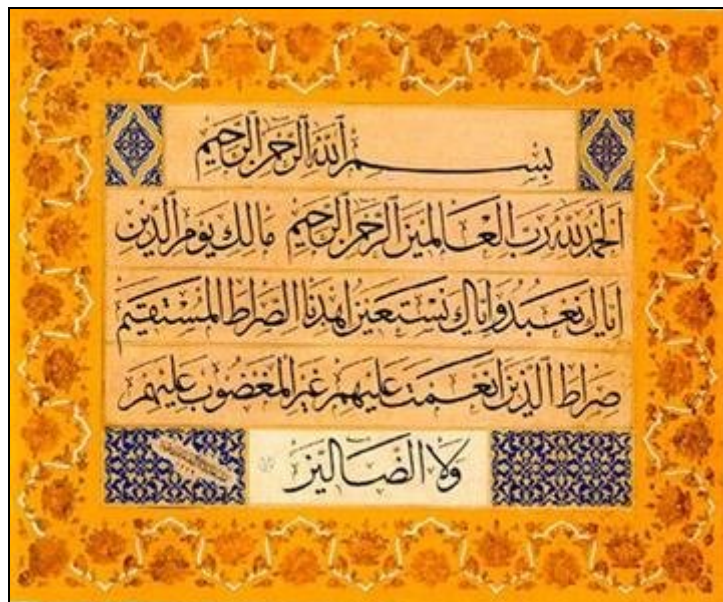 بِسْمِ ٱللَّهِ ٱلرَّحْمَٰنِ ٱلرَّحِيمِ
اَلْحَمْدُ لِلَّهِ رَبِّ الْعَالَمِينَ اَلرَّحْمٰنِ الرَّحِيمِ مَالِكِ يَوْمِ الدِّينِ
اِيَّاكَ نَعْبُدُ وَاِيَّاكَ نَسْتَعِينُ اِهْدِنَا الصِّرَاطَ الْمُسْتَقِيمَ
صِرَاطَ الَّذِينَ اَنْعَمْتَ عَلَيْهِمْ غَيْرِ الْمَغْضُوبِ عَلَيْهِمْ
وَلَا الضَّالِّينَ